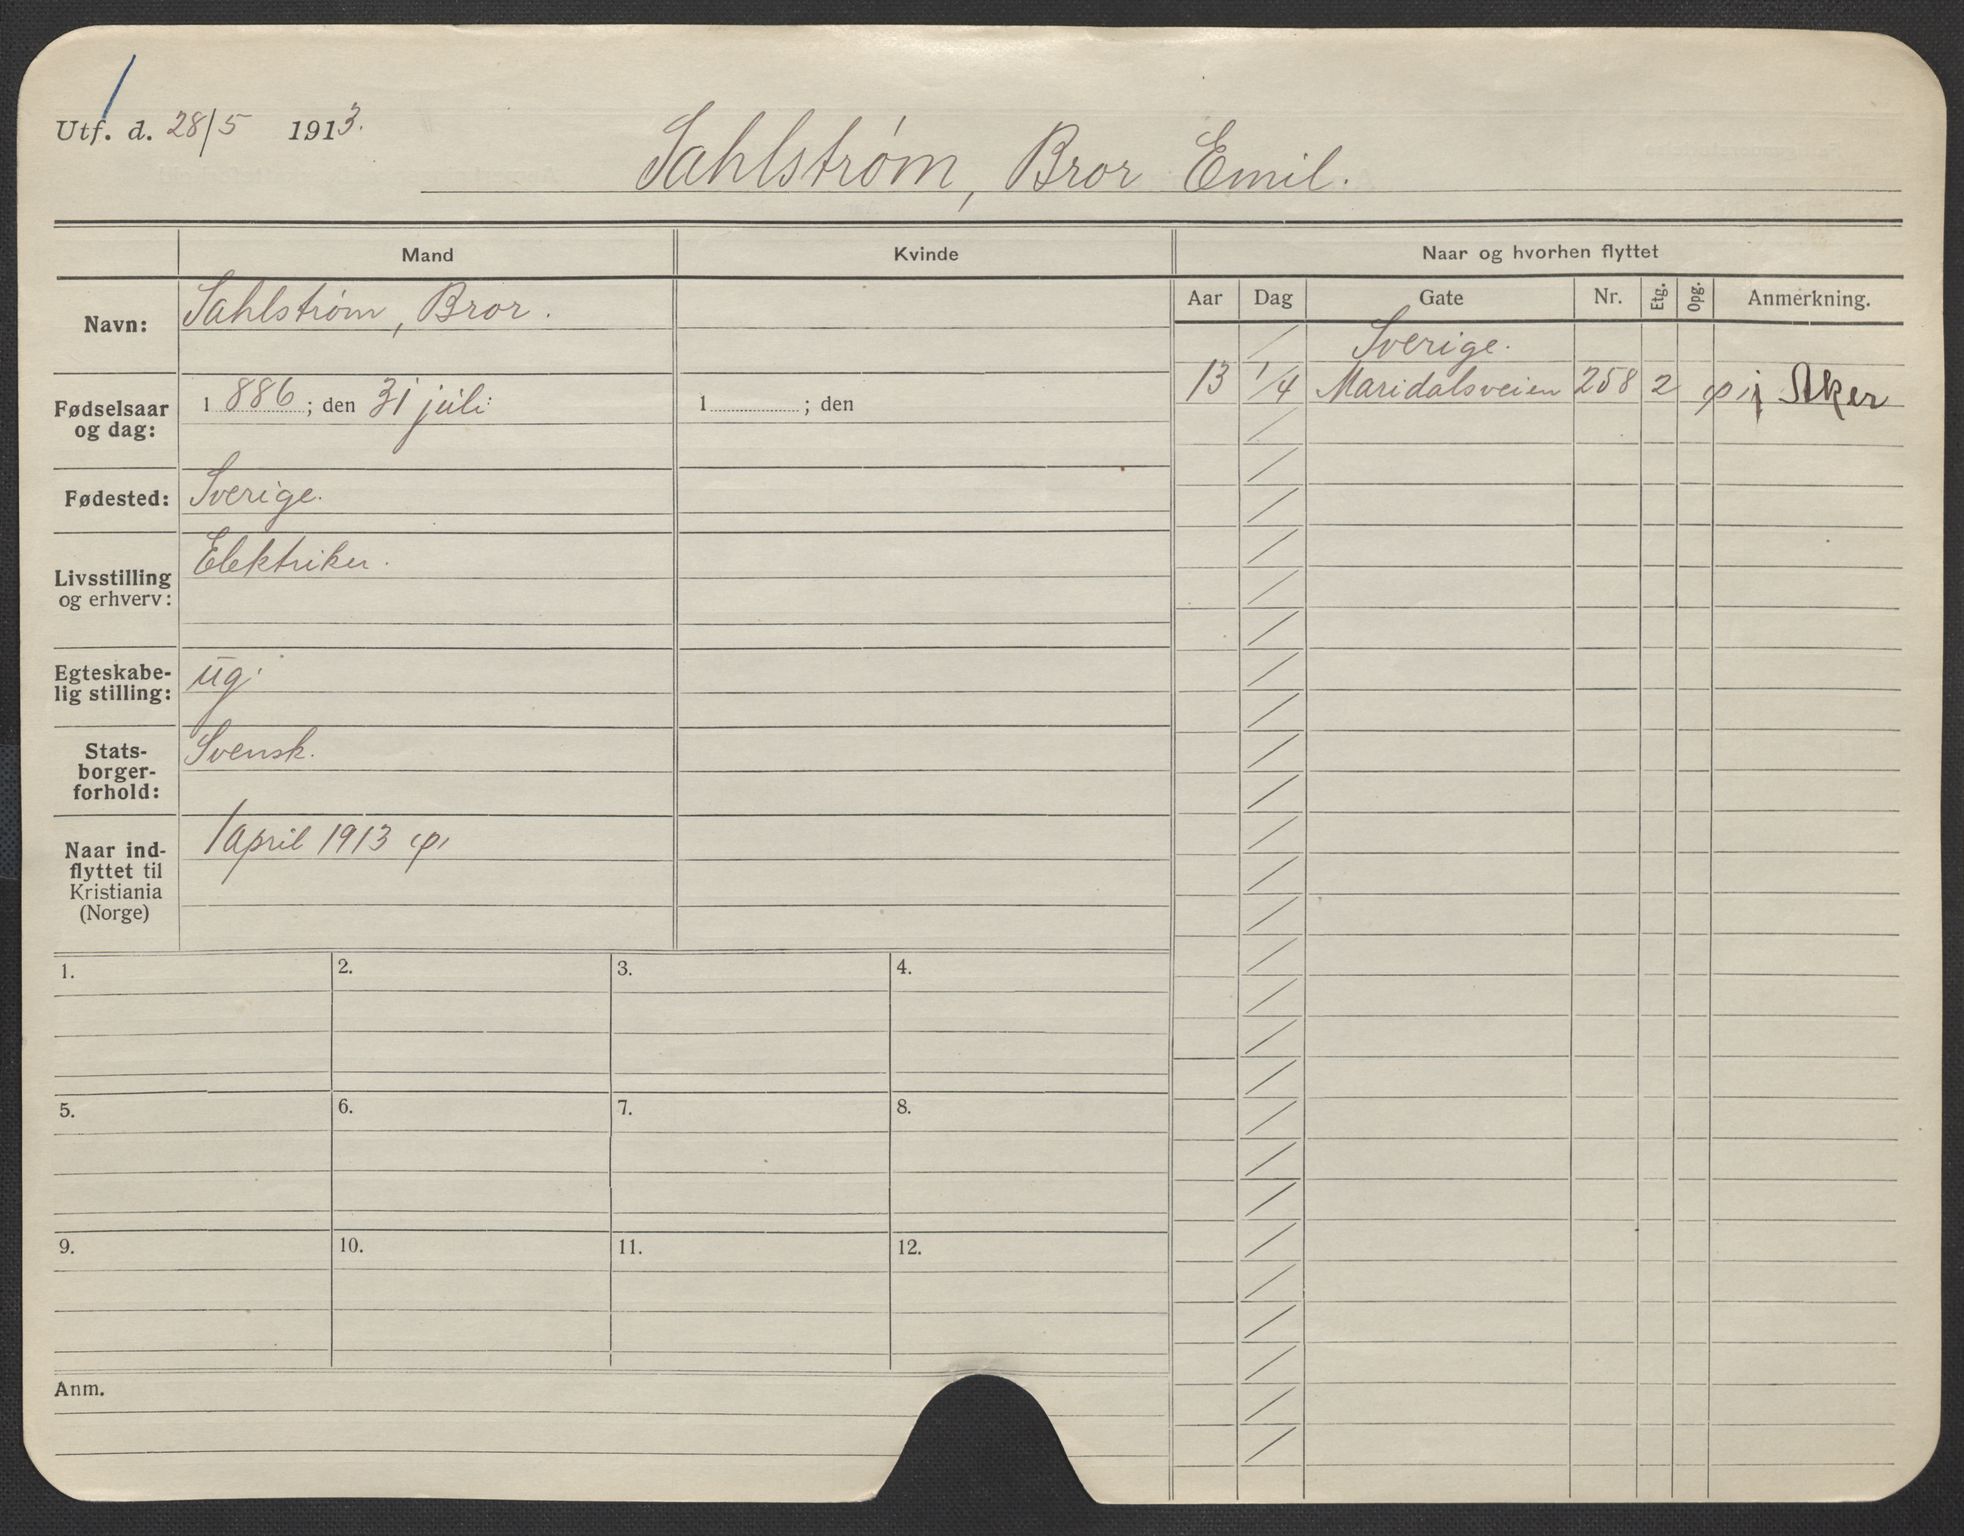 Utf. d. 28/5 1913.
Sahlstrøm, Bror Emil.
Mand
Kvinde
Naar og hvorhen flyttet
Navn:
Sahlstrøm, Bror.
Aar Dag Gate Nr. Etg. Opg. Anmerkning.
Sverige.
13 1/4 Maridalsveien 258 2 Aker
Fødselsaar
og dag:
1886; den 31 juli
1 ; den
Fødested:
Sverige.
Livsstilling
og erhverv:
Elektriker.
Egteskabe-
lig stilling:
ug.
Stats-
borger-
forhold:
Svensk.
Naar ind-
flyttet til
Kristiania
(Norge)
1 april 1913
1. 2. 3. 4.
5. 6. 7. 8.
9. 10. 11. 12.
Anm.